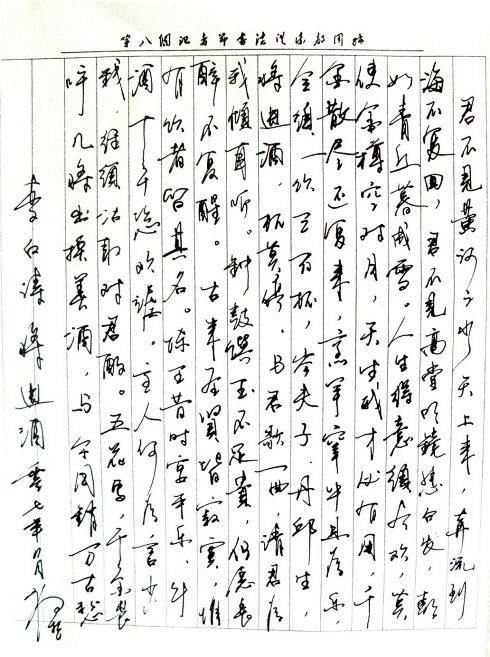 第八個記者節書法
君不見黃河之水天上來，奔流到
海不復回，君不見高堂明鏡悲白发，朝
如青丝暮成雪。人生得意須尽欢，莫
使金樽空对月，天生我才必有用，千
金散尽还复来，烹羊宰牛且为乐，
会須一饮三百杯，岑夫子、丹邱生，
將進酒，杯莫停。与君歌一曲，请君为
我傾耳听。钟鼓馔玉不足貴，但愿長
醉不复醒。古来圣賢皆寂寞，惟
有饮者留其名。陈王昔时宴平乐，斗
酒十千恣欢謔。主人何为言少
钱，径須沽取对君酌。五花马，千金裘
呼儿將出換美酒，与尔同銷万古愁
李白诗將進酒 零七年 月